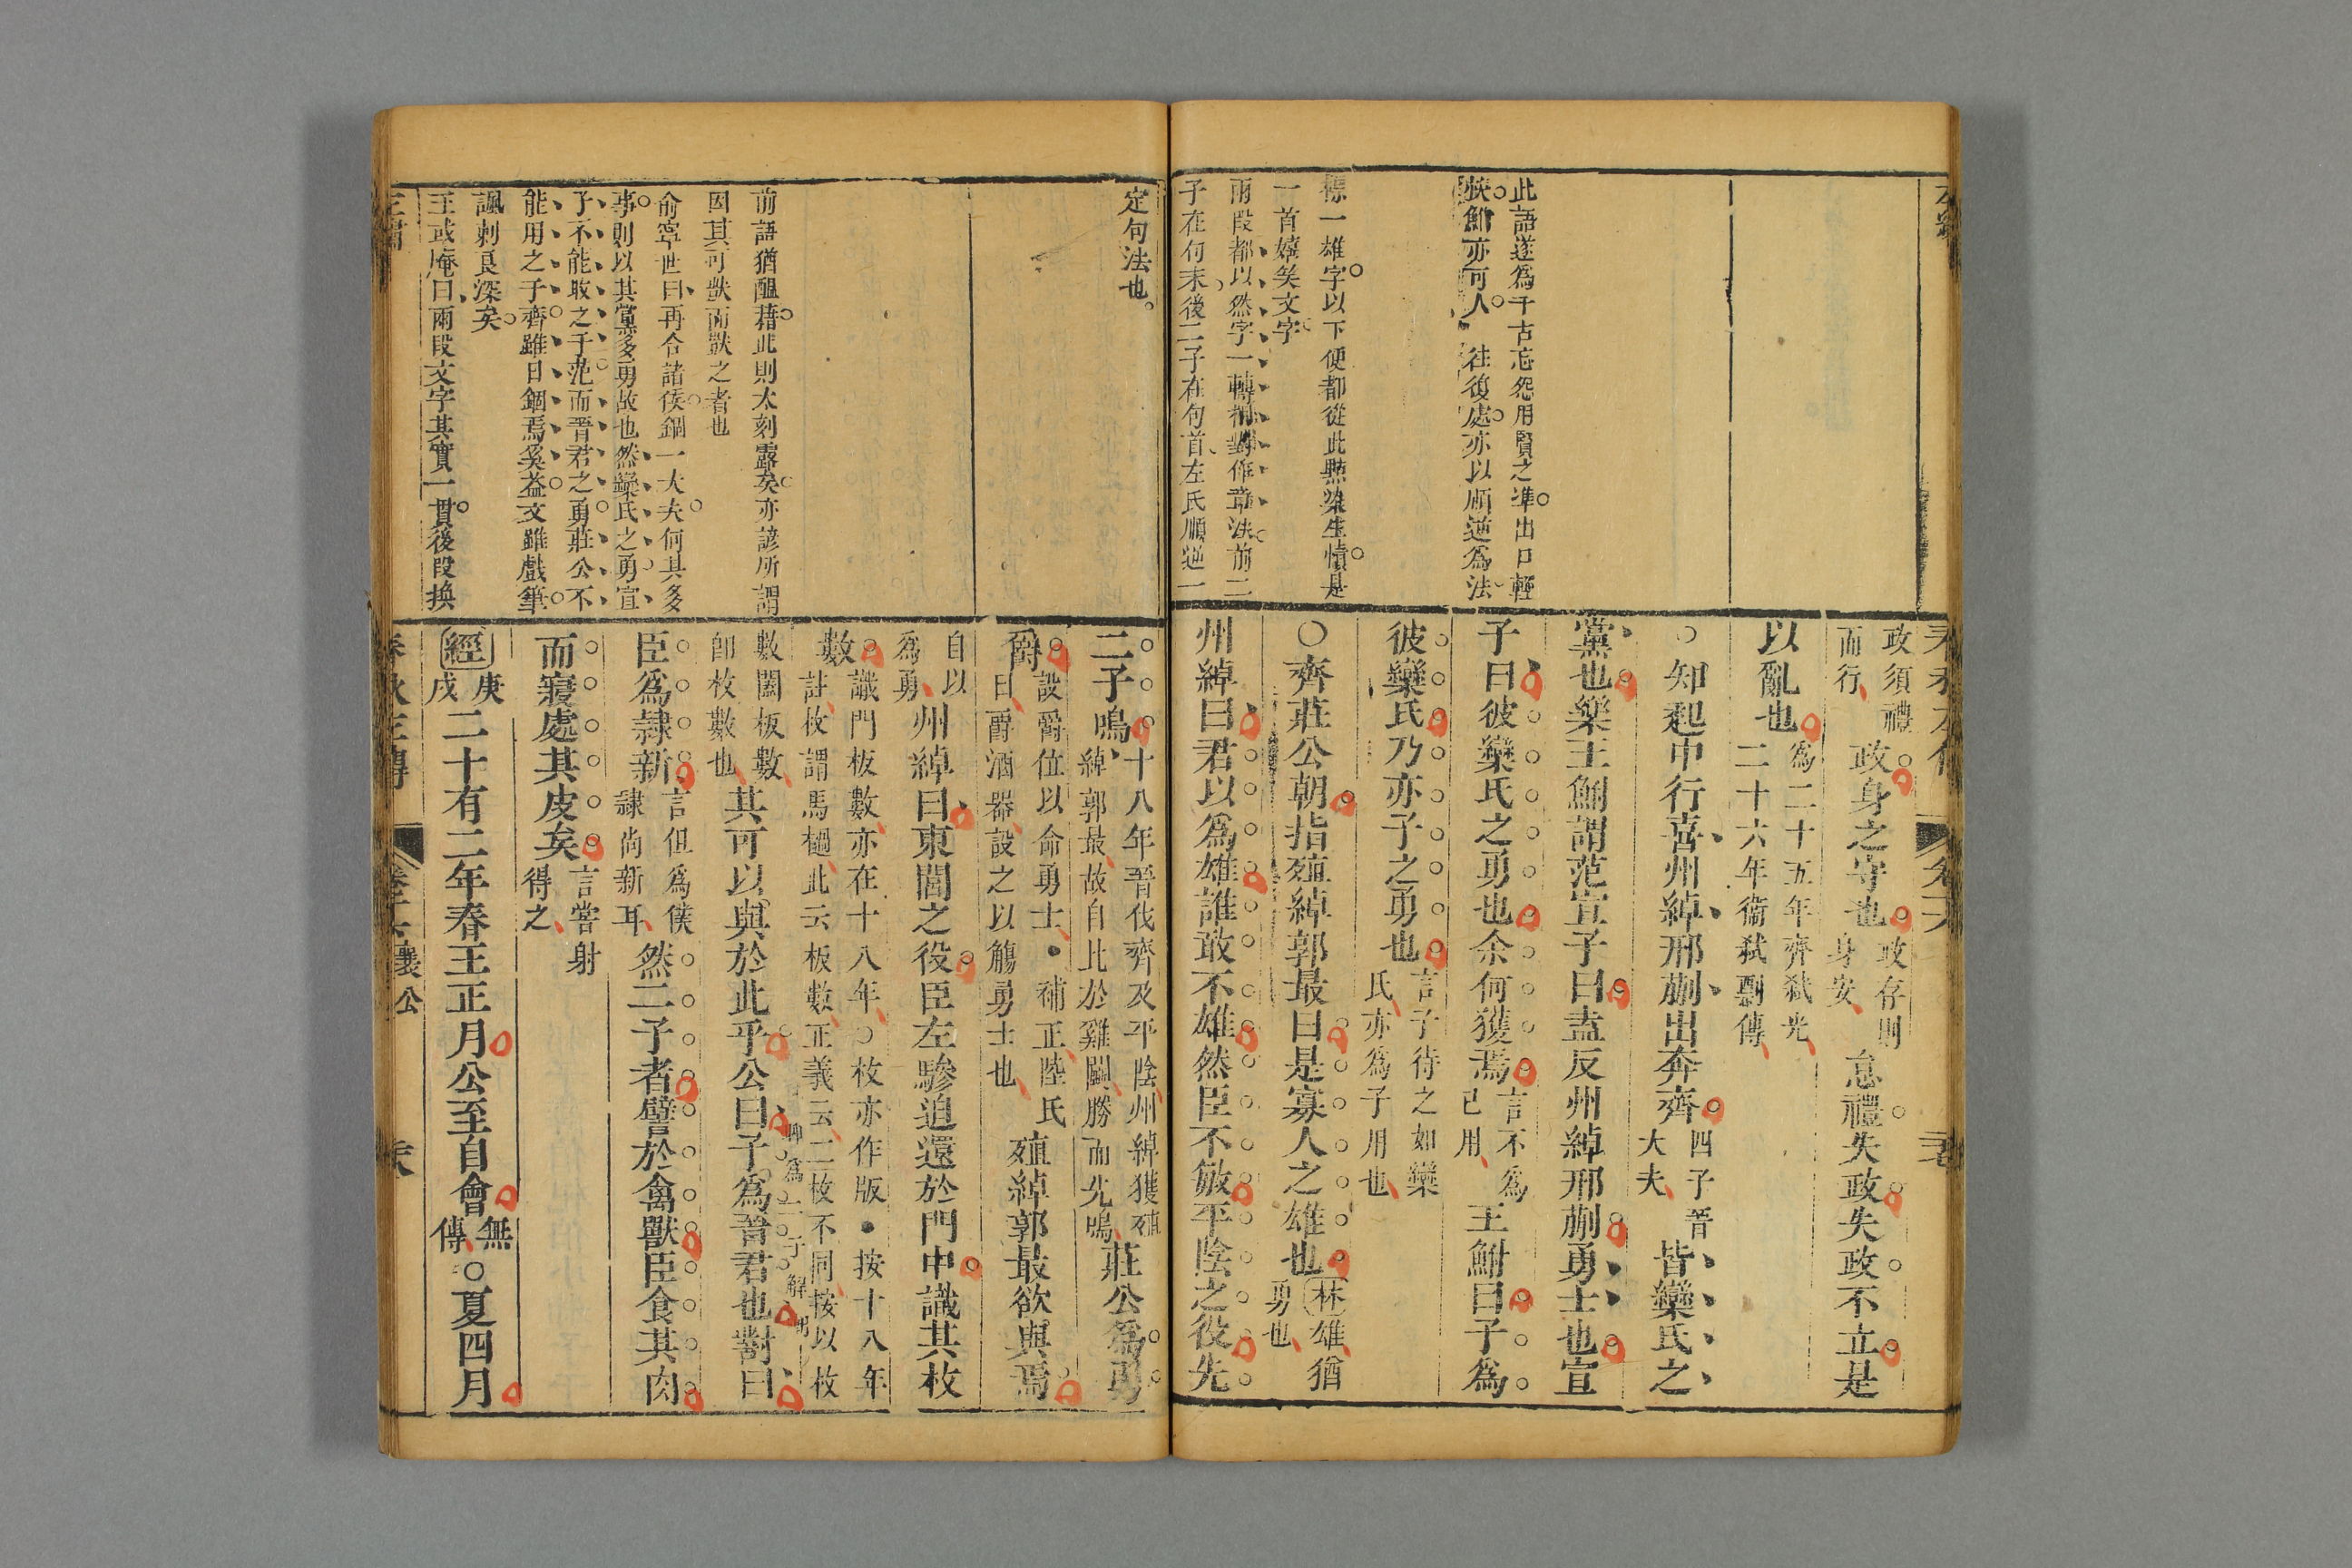 此語遂爲千古忘怨用賢之準出口輕
挾鮒亦可人 往復處亦以順逆爲法
標一雄字以下便都從此點染生情是
一首嬉笑文字
兩段都以然字一轉相對作章法前二
子在句末後二子在句首左氏順逆一
政須禮而行政身之守也政存則身安怠禮失政失政不立是
以亂也爲二十五年齊弑光二十六年衞弑剽傳
○知起中行喜州綽邢蒯出奔齊四子晉大夫皆欒氏之
黨也樂王鮒謂范宣子曰盍反州綽邢蒯勇士也宣
子曰彼欒氏之勇也余何獲焉言不爲已用王鮒曰子爲
彼欒氏乃亦子之勇也言子待之如欒氏亦爲子用也
○齊莊公朝指殖綽郭最曰是寡人之雄也林雄猶勇也
州綽曰君以爲雄誰敢不雄然臣不敏平陰之役先
定句法也
前語猶醞藉此則太刻露矣亦諺所謂
因其可獃而獃之者也
俞寧世曰再合諸侯錮一大夫何其多
事則以其黨多勇故也然欒氏之勇宣
子不能收之于范而晉君之勇莊公不
能用之于齊雖日錮焉奚益文雖戲筆
諷刺良深矣
王或庵曰兩段文字其實一貫後段換
二子鳴十八年晉伐齊及平陰州綽獲殖綽郭最故自比於雞鬬勝而先鳴莊公爲勇
爵設爵位以命勇士•補正陸氏曰爵酒器設之以觴勇士也殖綽郭最欲與焉
自以爲勇州綽曰東閭之役臣左驂迫還於門中識其枚
數識門板數亦在十八年○枚亦作版•按十八年註枚謂馬檛此云板數正義云二枚不同按以枚
數闔板數卽枚數也其可以與於此乎公曰子爲晉君也對曰
臣爲隸新言但爲僕隸尙新耳然二子者譬於禽獸臣食其肉
而寢處其皮矣言嘗射得之
經庚戌二十有二年春王正月公至自會無傳○夏四月
春秋左傳 襄公